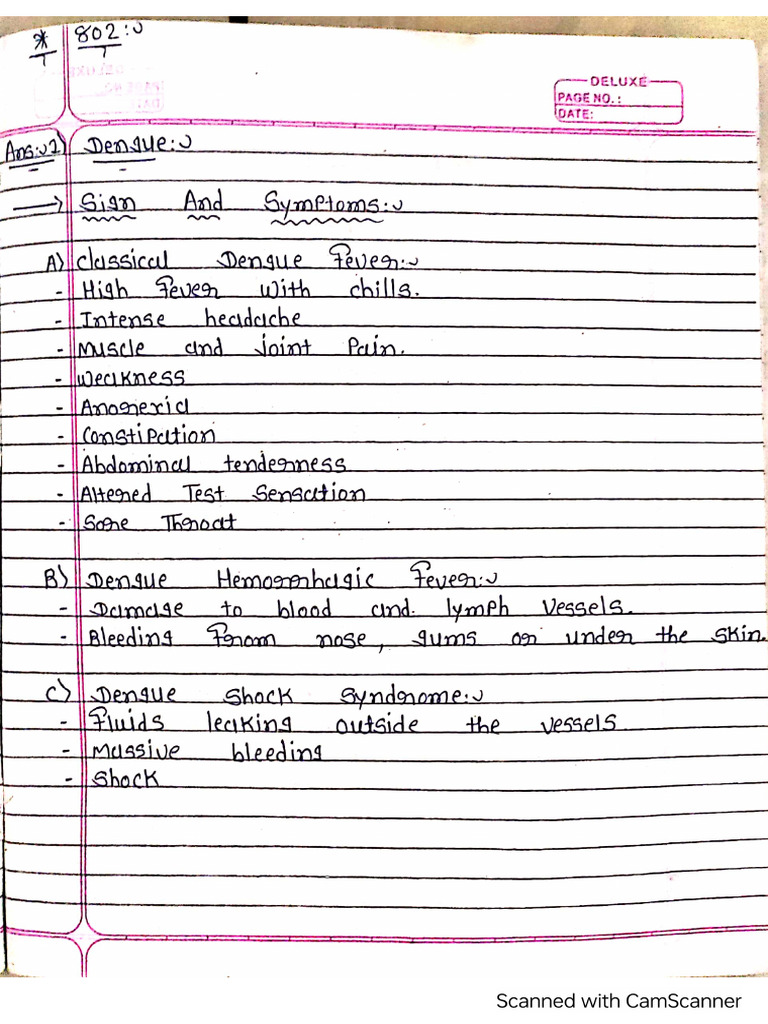 * 802:-
DELUXE
PAGE NO.:
DATE:
Ans:-1) Dengue:-
→ Sign And Symptoms:-
A) Classical Dengue Fever:-
- High Fever with chills.
- Intense headache
- Muscle and joint Pain.
- Weakness
- Anorexia
- Constipation
- Abdominal tenderness
- Altered Test Sensation
- Sore Throat
B) Dengue Hemorrhagic Fever:-
- Damage to blood and. lymph vessels.
- Bleeding from nose, gums or under the skin.
C) Dengue Shock Syndrome:-
- Fluids leaking outside the vessels
- Massive bleeding
- Shock
Scanned with CamScanner